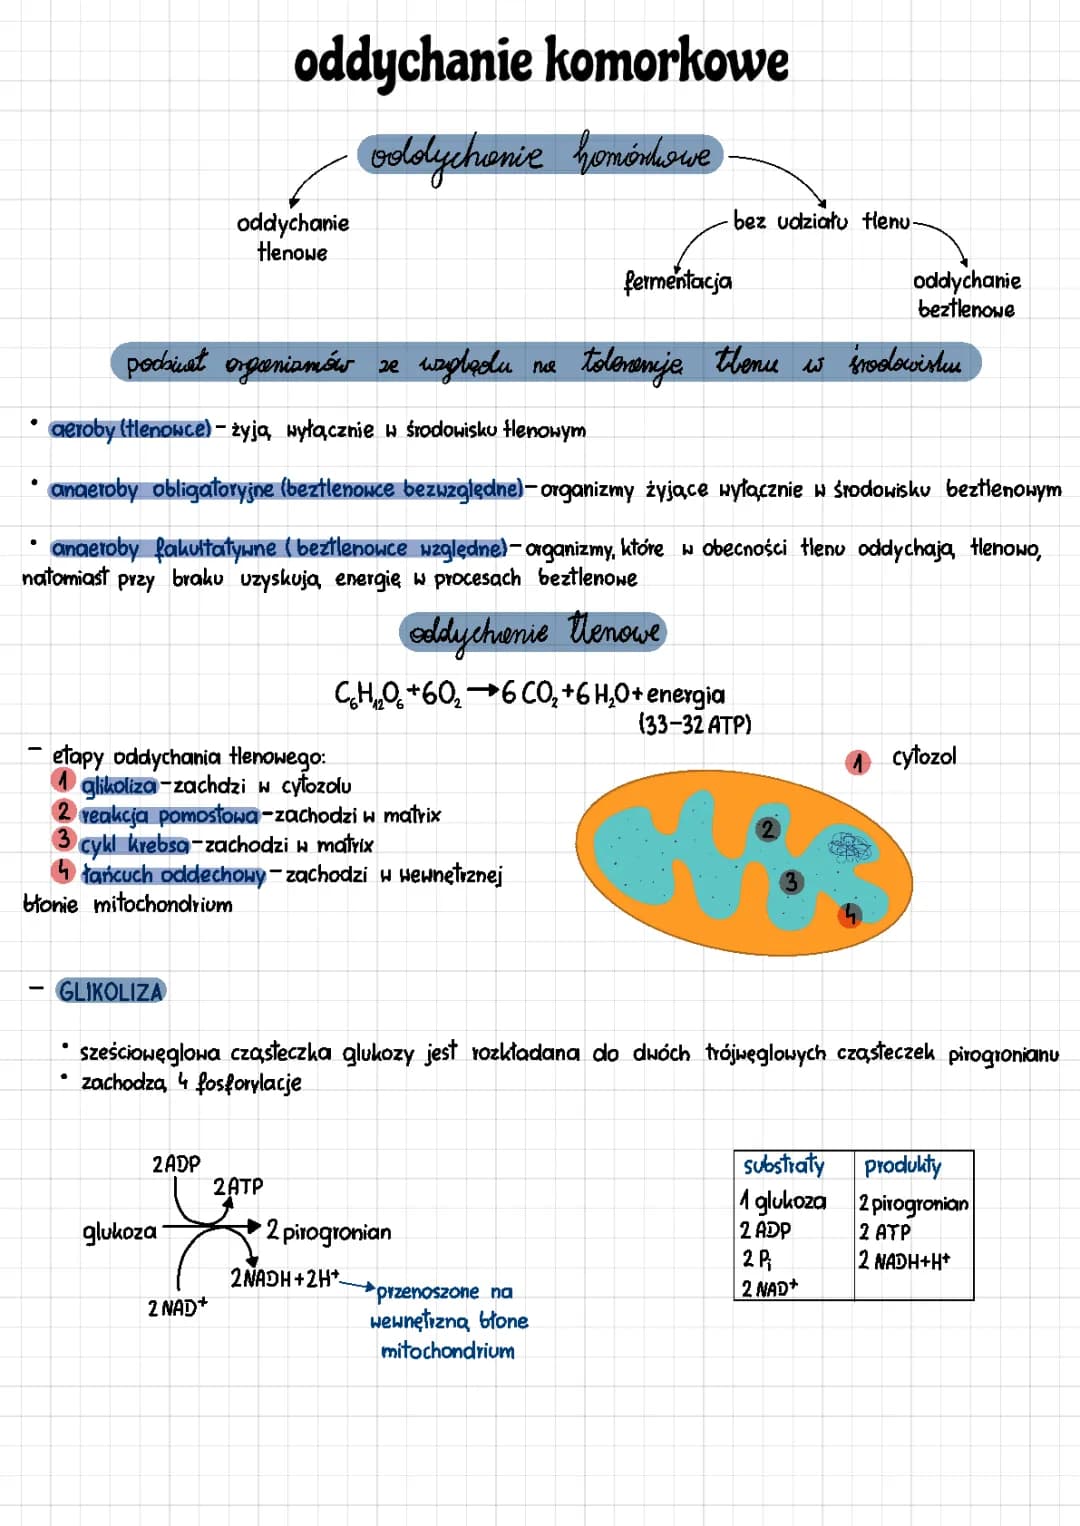 oddychanie komorkowe
oddychanie komórkowe
oddychanie
tlenowe
bez udziału tlenu
fermentacja
oddychanie
beztlenowe
podział organizmów ze względu na tolerancję tlenu w środowisku
• aeroby (tlenowce) - żyją wyłącznie w środowisku tlenowym
• anaeroby obligatoryjne (beztlenowce bezwzględne) - organizmy żyjące wyłącznie w środowisku beztlenowym
• anaeroby fakultatywne (beztlenowce względne) - organizmy, które w obecności tlenu oddychają tlenowo,
natomiast przy braku uzyskują energię w procesach beztlenowe
oddychanie tlenowe
C₆H₁₂O₆ + 6O₂ → 6 CO₂ + 6 H₂O + energia
(33-32 ATP)
- etapy oddychania tlenowego:
1 glikoliza - zachdzi w cytozolu
2 reakcja pomostowa - zachodzi w matrix
3 cykl krebsa - zachodzi w matrix
4 łańcuch oddechowy - zachodzi w wewnętrznej
błonie mitochondrium
1 cytozol
2
3
4
- GLIKOLIZA
• sześciowęglowa cząsteczka glukozy jest rozkładana do dwóch trójwęglowych cząsteczek pirogronianu
• zachodzą 4 fosforylacje
2 ADP
2 ATP
glukoza
2 pirogronian
2 NADH + 2H⁺
2 NAD⁺
przenoszone na
wewnętrzną błone
mitochondrium
substraty produkty
1 glukoza 2 pirogronian
2 ADP 2 ATP
2 Pᵢ 2 NADH+H⁺
2 NAD⁺